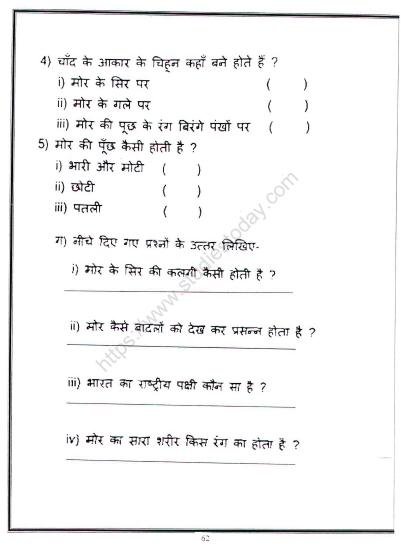 4) चाँद के आकार के चिह्न कहाँ बने होते हैं ?
i) मोर के सिर पर ( )
ii) मोर के गले पर ( )
iii) मोर की पूछ के रंग बिरंगे पंखों पर ( )
5) मोर की पूँछ कैसी होती है ?
i) भारी और मोटी ( )
ii) छोटी ( )
iii) पतली ( )
ग) नीचे दिए गए प्रश्नों के उत्तर लिखिए-
i) मोर के सिर की कलगी कैसी होती है ?
ii) मोर कैसे बादलों को देख कर प्रसन्न होता है ?
iii) भारत का राष्ट्रीय पक्षी कौन सा है ?
iv) मोर का सारा शरीर किस रंग का होता है ?
62
https://www.studiestoday.com